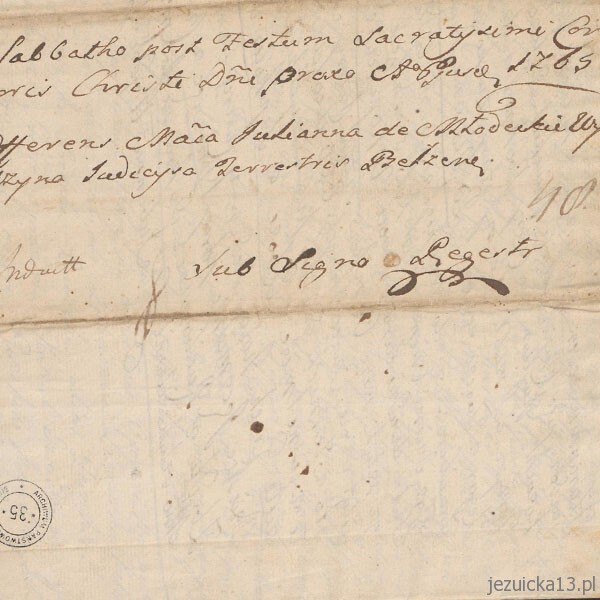 Sabbatho post Festum Sacratissimi Cor
oris Christi Dñi proxo Aō 1765
fferens Mac̃a Julianna de Młodeckie Wy
zyna Judicissa Terrestris Belzene
48
Induct
Sub Signo Regestr
ARCHIWUM PAŃSTWOW
35
jezuicka13.pl